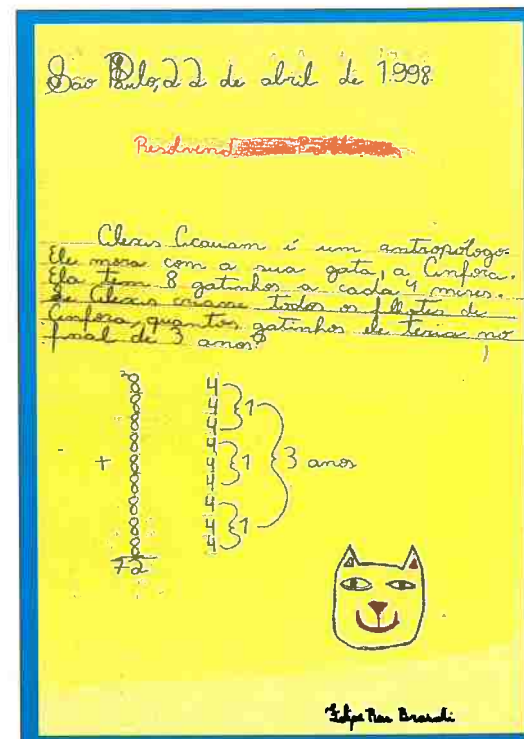 São Paulo, 22 de abril de 1.998.
Resolvendo
Clexus Ccauam é um antropólogo.
Ele mora com a sua gata, a Cinfora.
Ela tem 8 gatinhos a cada 4 meses.
Se Clexus criasse todos os filhotes de
Cinfora, quantos gatinhos ele teria no
final de 3 anos?
2
8
8
8
8
+ 8
8
8
8
8
72
4
4 } 1
4
4
4 } 1 } 3 anos
4
4
4 } 1
4